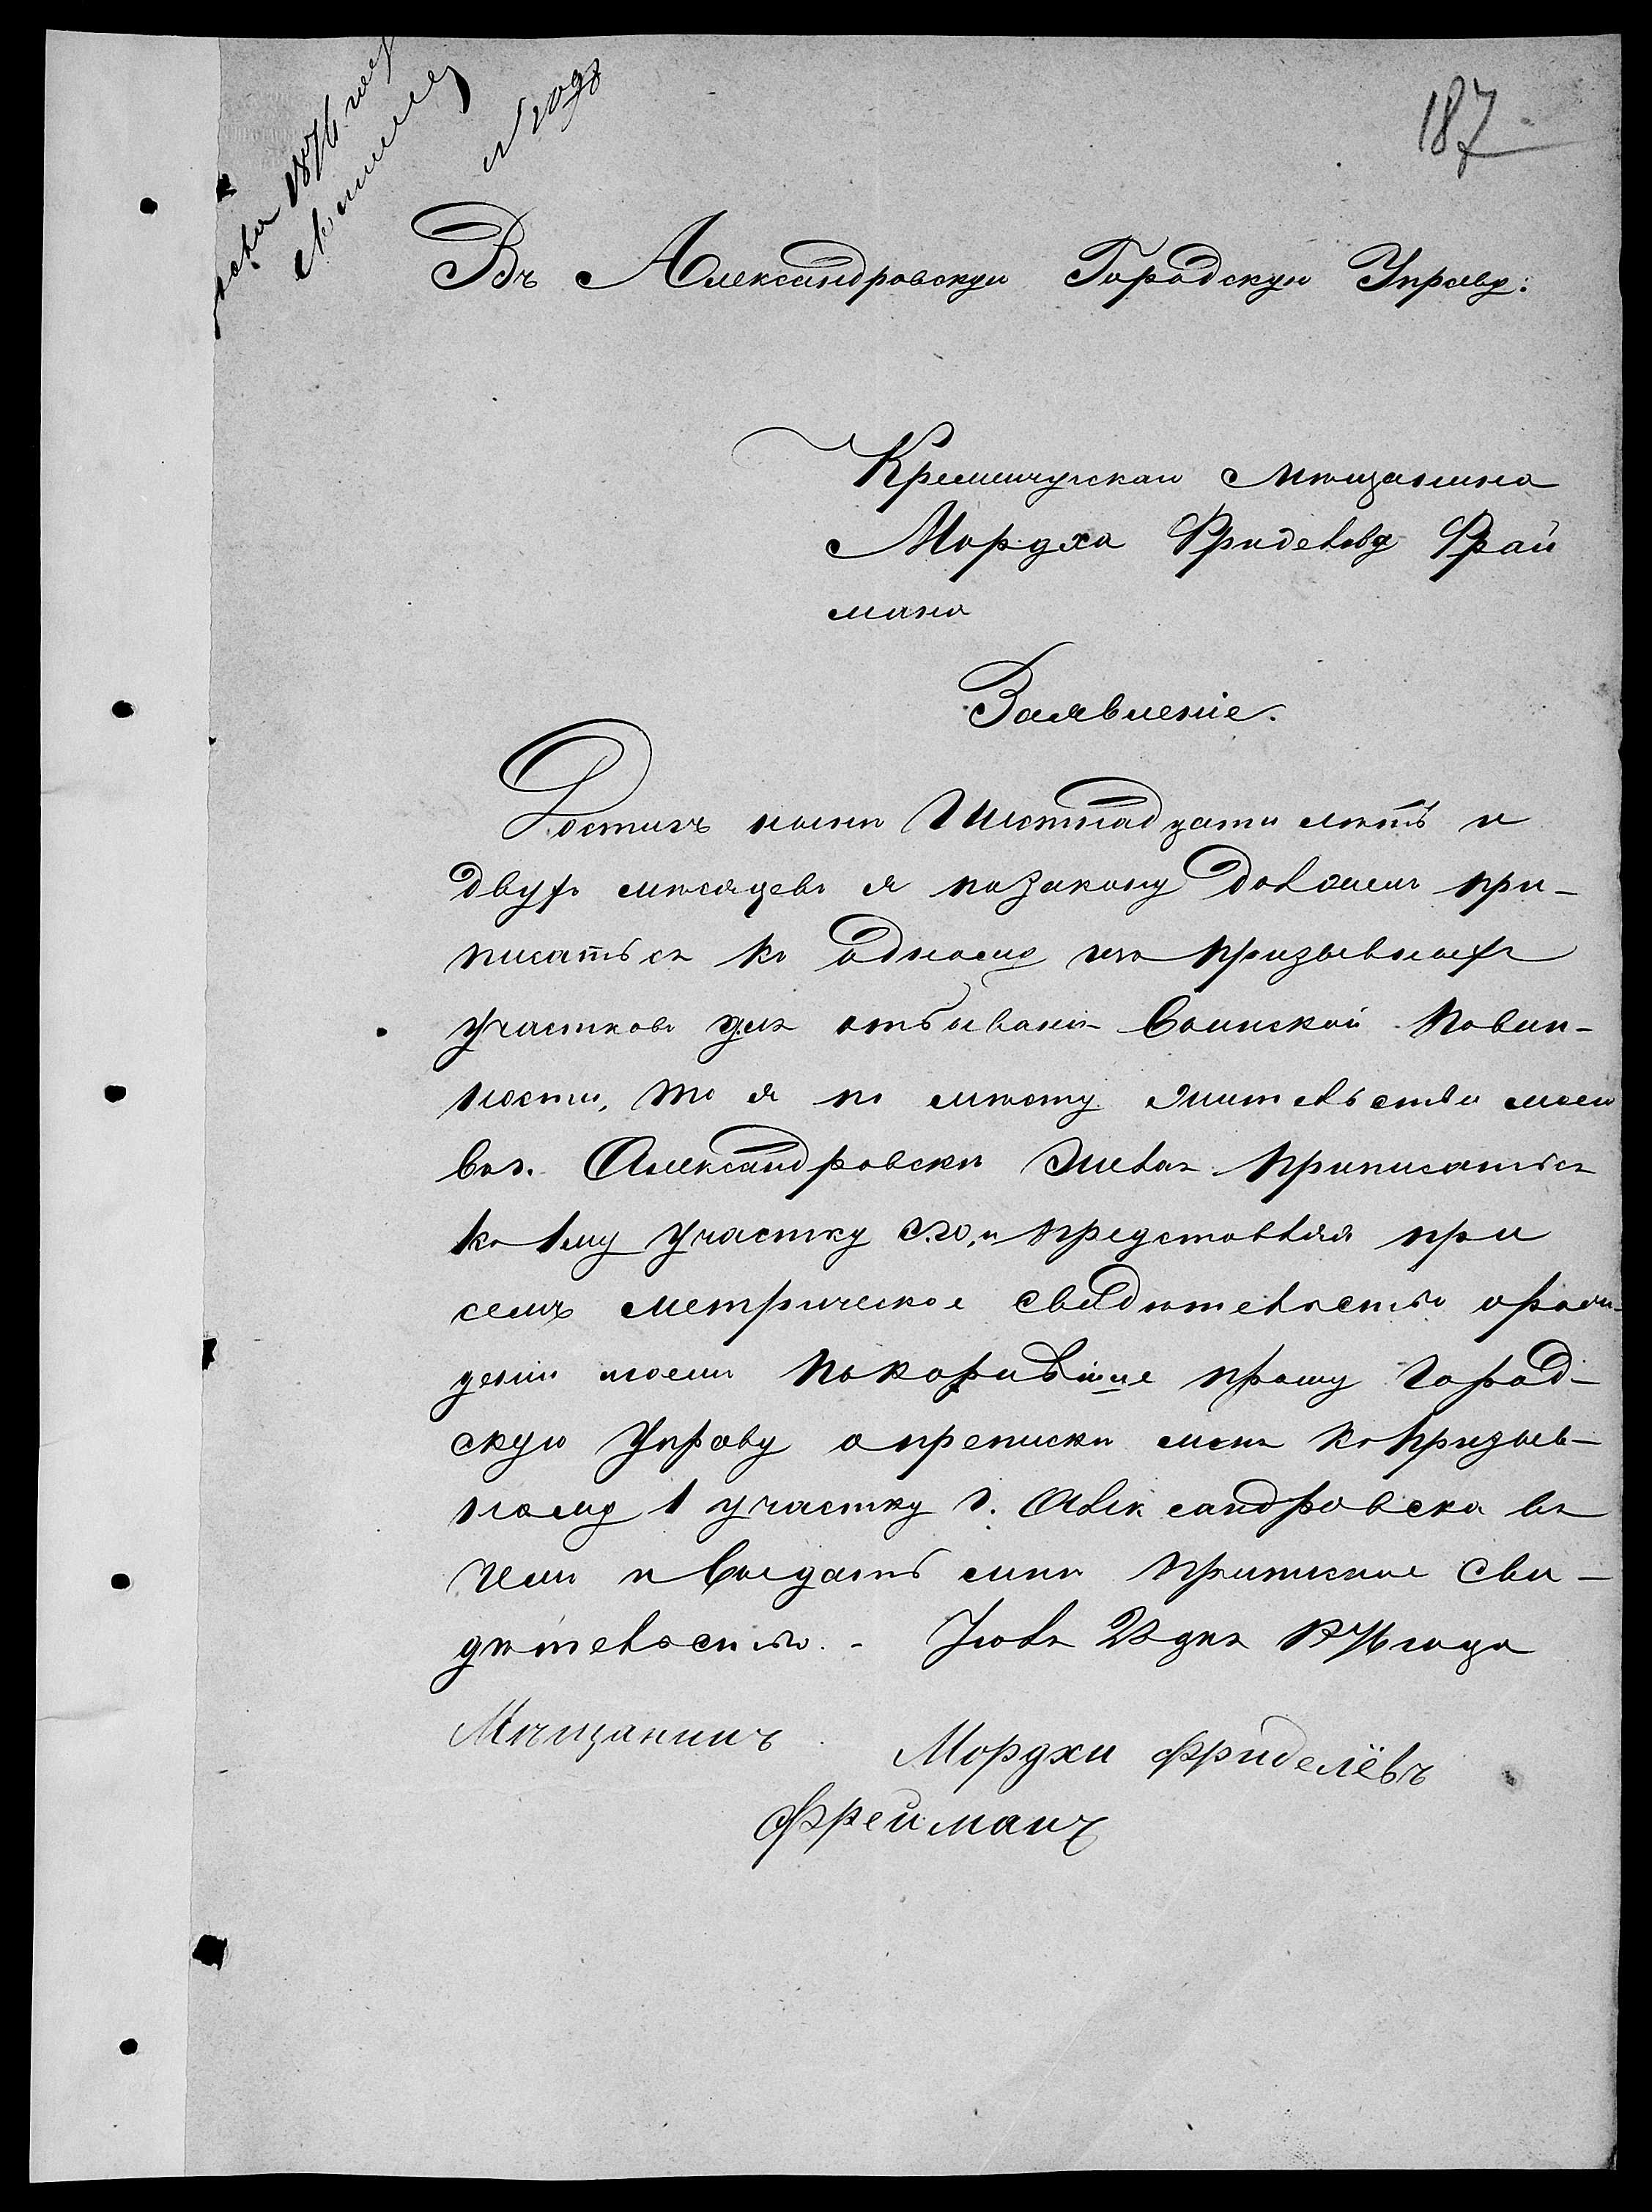 187
1876
Въ Александровскую Городскую Управу:
Кременчугскаго Мѣщанина
Мордха Фриделева Фрай
мана
Заявленіе.
Достигъ нынѣ Шестнадцати лѣтъ и
двухъ мѣсяцевъ я по Закону долженъ при-
писаться къ одному изъ призывныхъ
участковъ для отбыванія Воинской Повин-
ности, то я по мѣсту жительства моего
въ г. Александровскѣ желая приписаться
къ 1му участку онаго, и представляя при
семъ метрическое свидѣтельство о рож-
деніи моемъ покорнѣйше прошу Город-
скую Управу о припискѣ меня къ призыв-
ному 1 участку г. Александровска въ
чемъ и выдать мнѣ приписное сви-
дѣтельство. - Іюля 23 дня 1876 года
Мѣщанинъ Мордхи Фриделёвъ
Фрейманъ